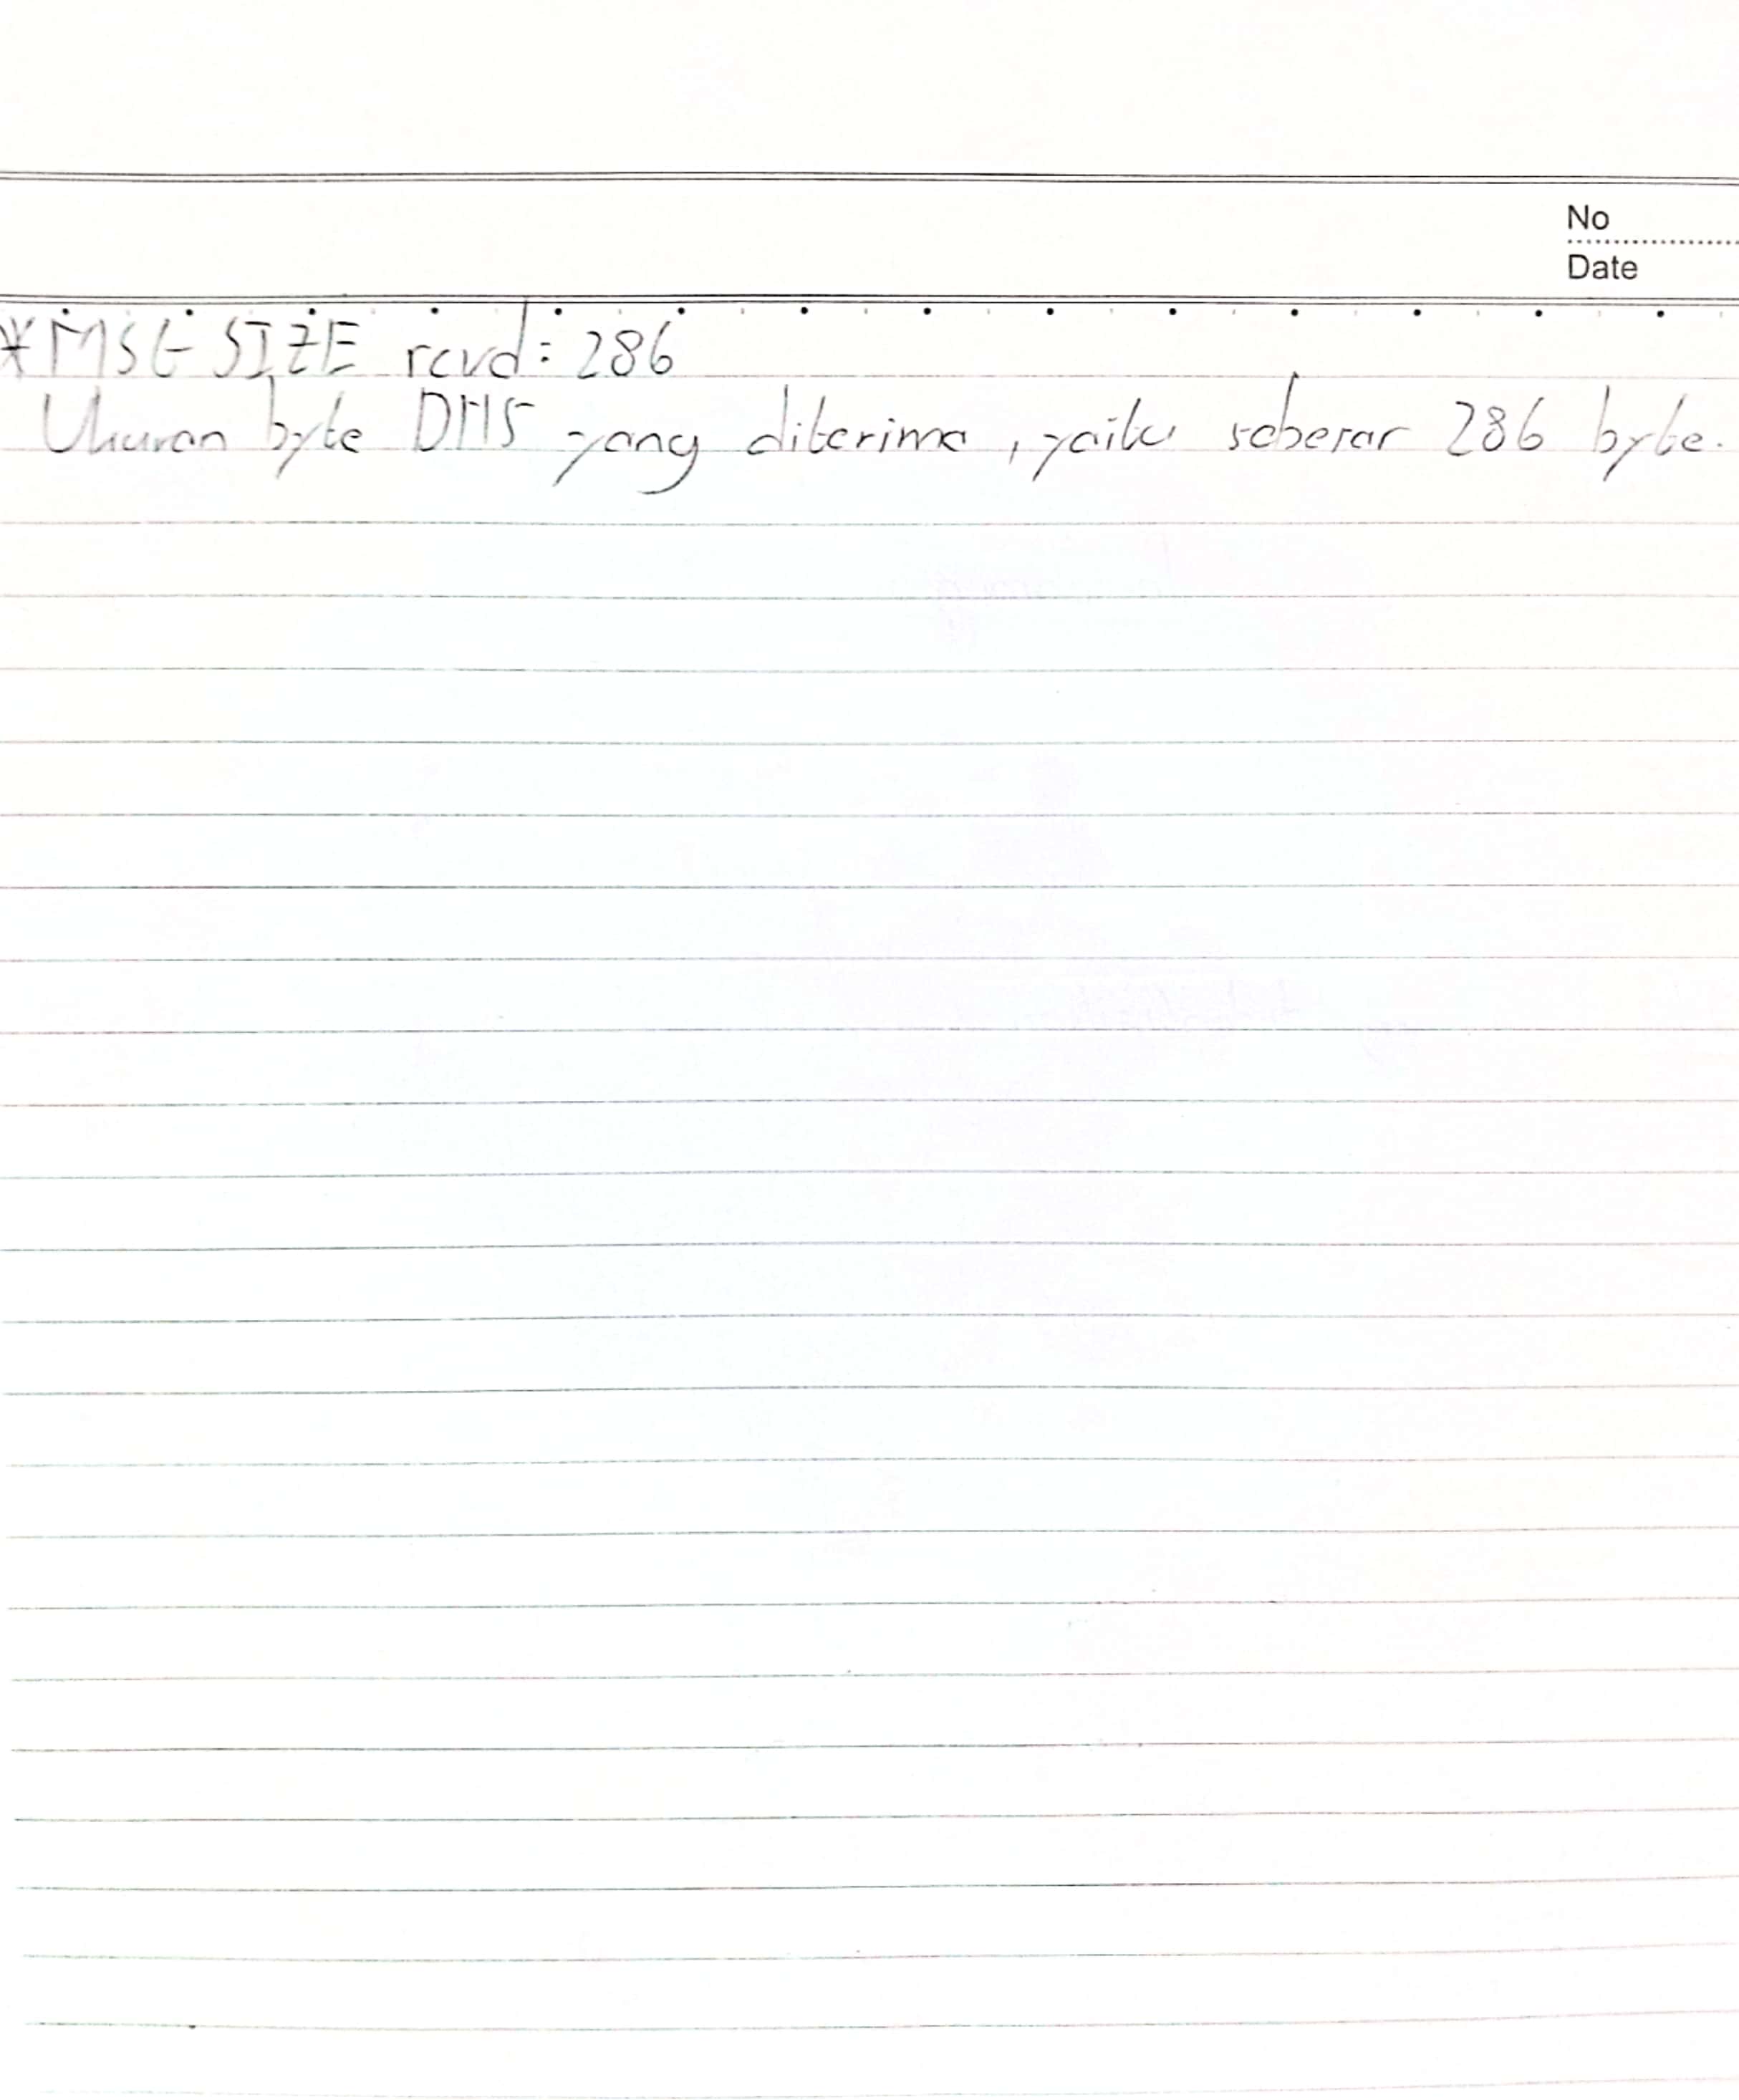 No
Date
*MSG SIZE rcvd: 286
Ukuran byte DNS yang diterima, yaitu sebesar 286 byte.